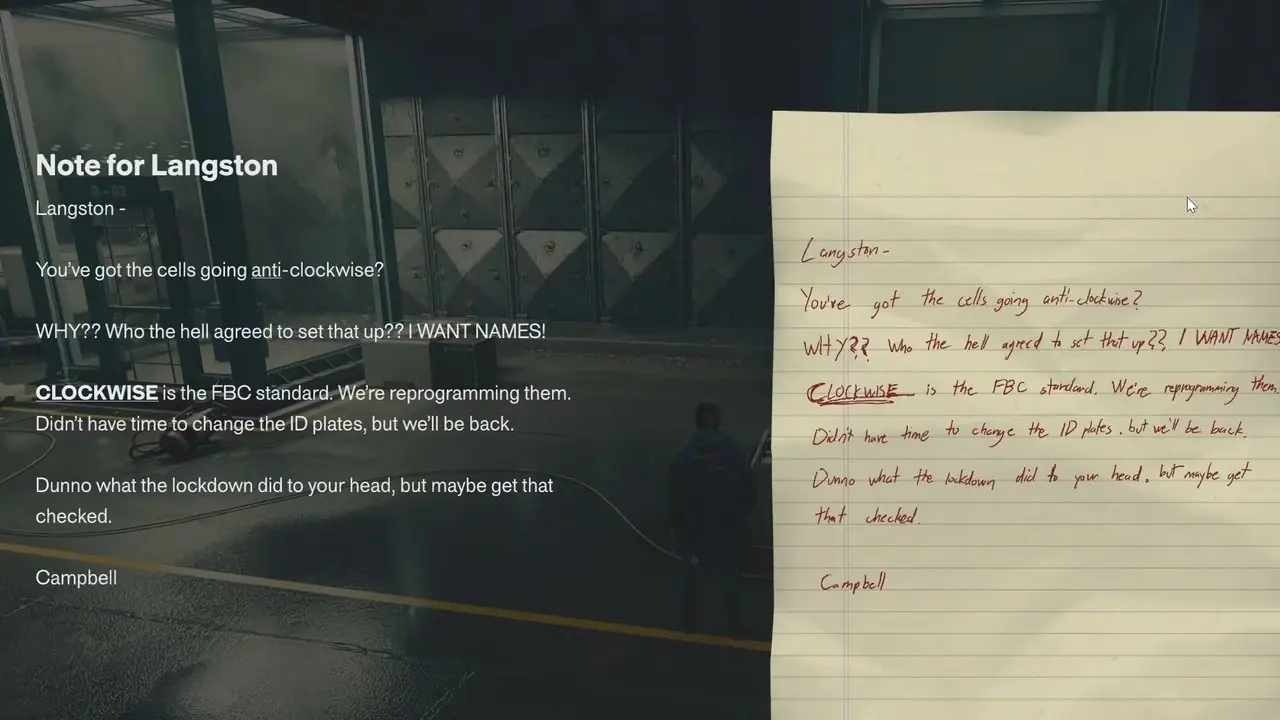 Note for Langston
Langston -
You've got the cells going anti-clockwise?
WHY?? Who the hell agreed to set that up?? I WANT NAMES!
CLOCKWISE is the FBC standard. We're reprogramming them.
Didn't have time to change the ID plates, but we'll be back.
Dunno what the lockdown did to your head, but maybe get that
checked.
Campbell
Langston-
You've got the cells going anti-clockwise?
WHY?? Who the hell agreed to set that up??, I WANT NAMES
CLOCKWISE is the FBC standard. We're reprogramming them.
Didn't have time to change the ID plates. but we'll be back.
Dunno what the lockdown did to your head, but maybe get
that checked.
Campbell